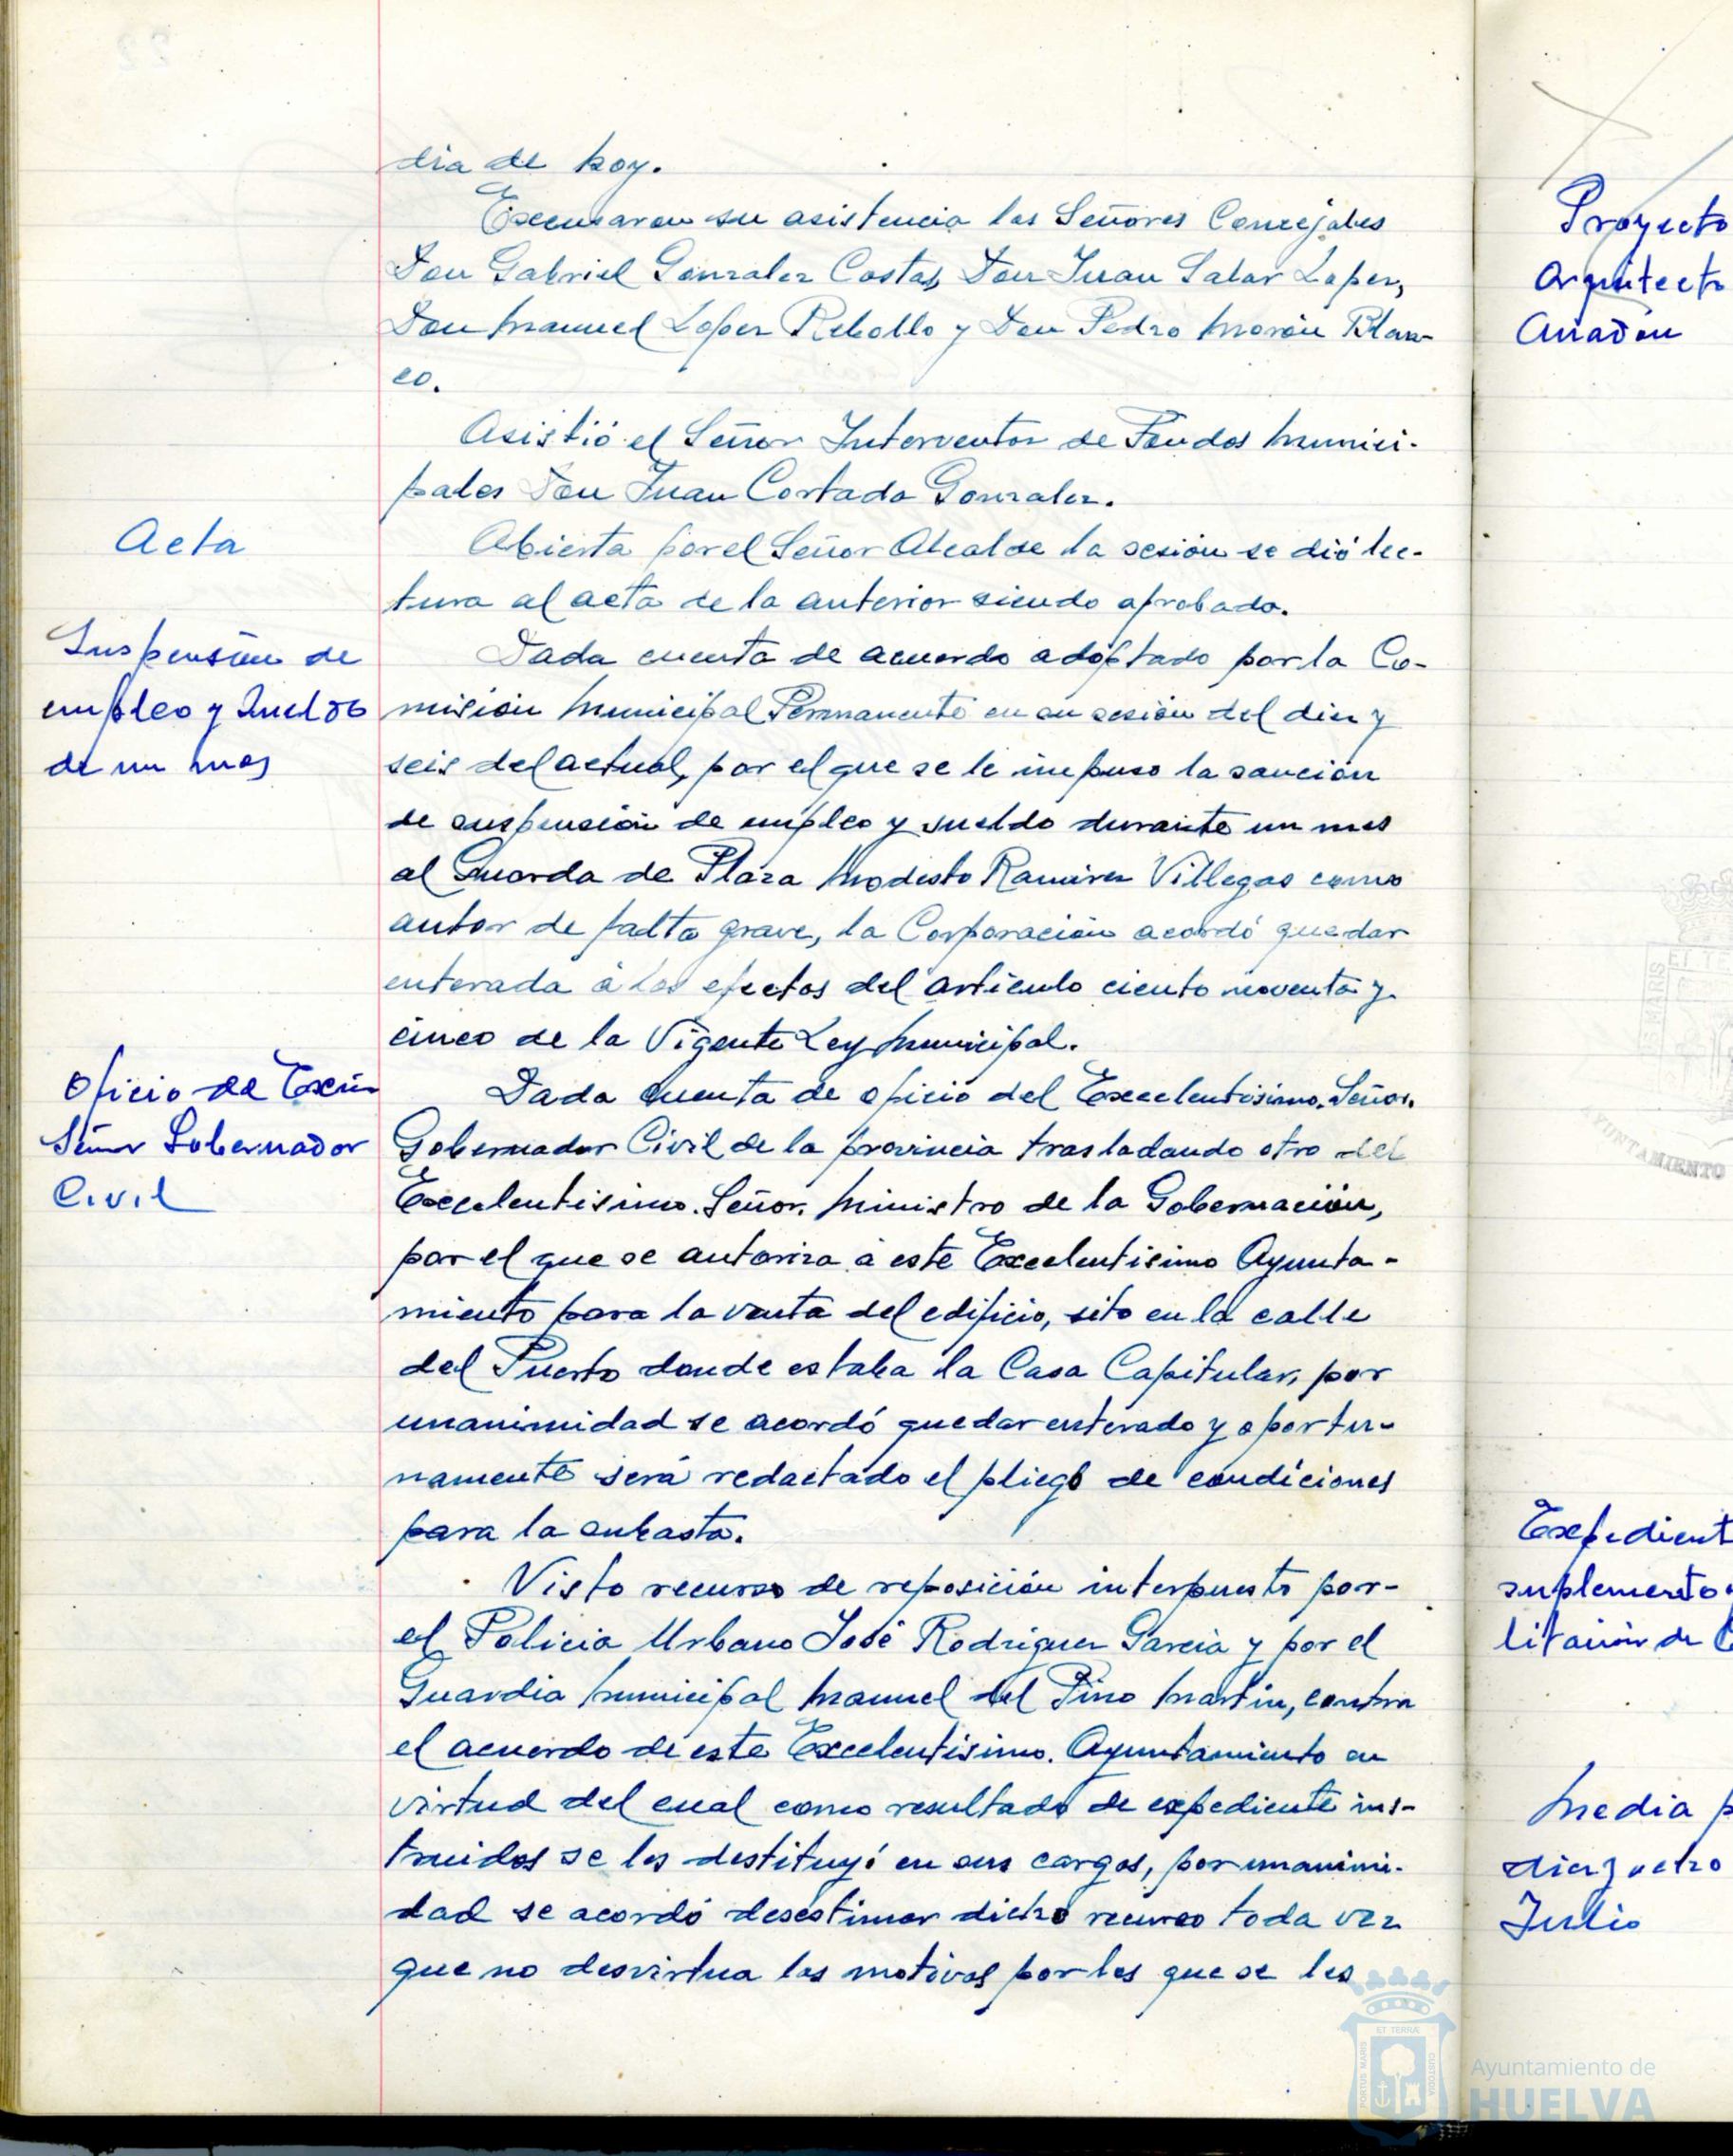 dia de hoy.
Excusaron su asistencia los Señores Concejales
Don Gabriel Gonzalez Costas, Don Juan Salar Lopez,
Don Manuel Lopez Rebollo y Don Pedro Morón Blan-
co.
Asistió el Señor Interventor de Fondos Munici-
pales Don Juan Cortada Gonzalez.
Acta
Abierta por el Señor Alcalde la sesión se dió lec-
tura al acta de la anterior siendo aprobada.
Suspensión de
empleo y sueldo
de un mes
Dada cuenta de acuerdo adoptado por la Co-
misión Municipal Permanente en su sesión del diez y
seis del actual, por el que se le impuso la sanción
de suspensión de empleo y sueldo durante un mes
al Guarda de Plaza Modesto Ramirez Villegas como
autor de falta grave, la Corporación acordó quedar
enterada á los efectos del articulo ciento noventa y
cinco de la Vigente Ley Municipal.
Oficio de Excmº
Señor Gobernador
Civil
Dada cuenta de oficio del Excelentisimo. Señor.
Gobernador Civil de la provincia trasladando otro del
Excelentisimo. Señor. Ministro de la Gobernación,
por el que se autoriza á este Excelentisimo Ayunta-
miento para la venta del edificio, sito en la calle
del Puerto donde estaba la Casa Capitular, por
unanimidad se acordó quedar enterado y oportu-
namente será redactado el pliego de condiciones
para la subasta.
Visto recurso de reposición interpuesto por-
el Policia Urbano José Rodriguez Garcia y por el
Guardia Municipal Manuel del Pino Martin, contra
el acuerdo de este Excelentisimo. Ayuntamiento en
virtud del cual como resultado de expediente ins-
truidos se les destituyó en sus cargos, por unanimi-
dad se acordó desestimar dicho recurso toda vez
que no desvirtua los motivos por los que se les
Proyecto
Arquitecto
Anadón
Expedient
suplemento
litación de
Media p
diez y ocho
Julio
AYUNTAMIENTO
ET TERRÆ
PORTUS MARIS
CUSTODIA
Ayuntamiento de
HUELVA